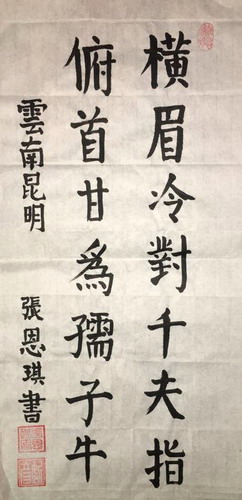 橫眉冷對千夫指
俯首甘為孺子牛
雲南昆明 張恩琪書